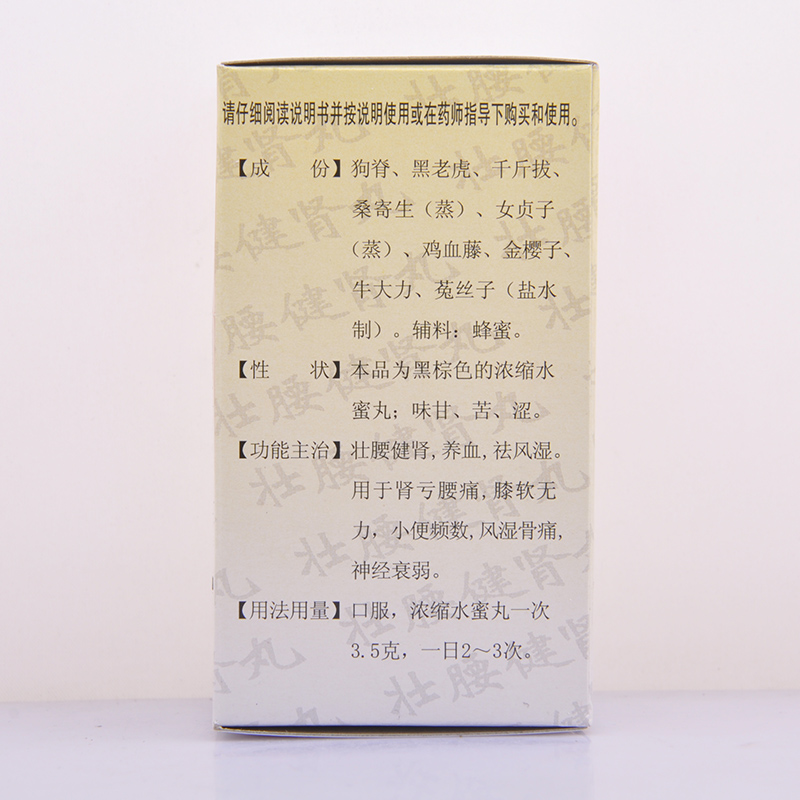 请仔细阅读说明书并按说明使用或在药师指导下购买和使用。
【成　　份】狗脊、黑老虎、千斤拔、
桑寄生（蒸）、女贞子
（蒸）、鸡血藤、金樱子、
牛大力、菟丝子（盐水
制）。辅料：蜂蜜。
【性　　状】本品为黑棕色的浓缩水
蜜丸；味甘、苦、涩。
【功能主治】壮腰健肾,养血,祛风湿。
用于肾亏腰痛,膝软无
力，小便频数,风湿骨痛,
神经衰弱。
【用法用量】口服，浓缩水蜜丸一次
3.5克，一日2～3次。
壮腰健肾丸